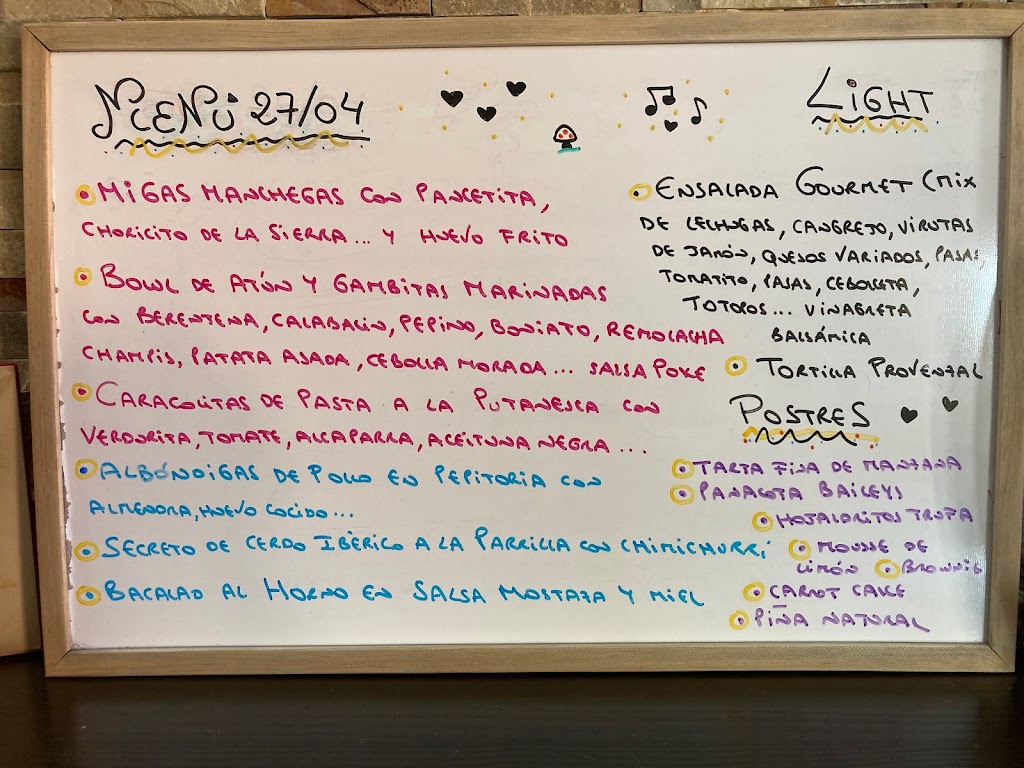 MENÚ 27/04
MIGAS MANCHEGAS CON PANCETITA,
CHORICITO DE LA SIERRA... Y HUEVO FRITO
BOWL DE ATÚN Y GAMBITAS MARINADAS
CON BERENTENA, CALABACIN, PEPINO, BONIATO, REMOLACHA
CHAMPIS, PATATA ASADA, CEBOLLA MORADA... SALSA POKE
CARACOLITAS DE PASTA A LA PUTANESCA CON
VERDURITA, TOMATE, ALCAPARRA, ACEITUNA NEGRA...
ALBÓNDIGAS DE POLLO EN PEPITORIA CON
ALMENDRA, HUEVO COCIDO...
SECRETO DE CERDO IBÉRICO A LA PARRILLA CON CHIMICHURRI
BACALAO AL HORNO EN SALSA MOSTAZA Y MIEL
LIGHT
ENSALADA GOURMET (MIX
DE LECHUGAS, CANGREJO, VIRUTAS
DE JAMÓN, QUESOS VARIADOS, PASAS,
TOMATITO, PASAS, CEBOLLETA,
TOTOPOS... VINAGRETA
BALSÁMICA
TORTILLA PROVENZAL
POSTRES
TARTA FINA DE MANZANA
PANACOTA BAILEYS
HOJALDRITOS TRUFA
MOUSSE DE
LIMÓN BROWNIE
CARROT CAKE
PIÑA NATURAL